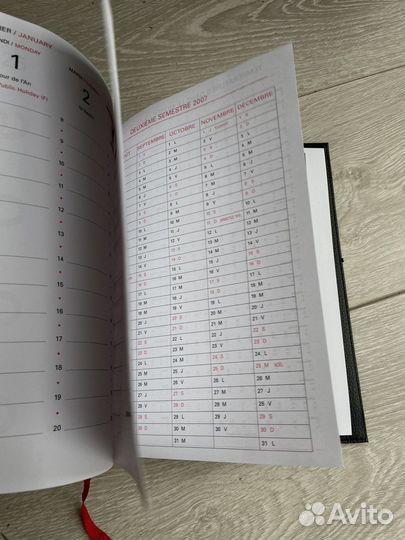 IER / JANUARY
NDI / MONDAY
1
our de l'An
Public Holiday (F)
MARDI
2
8
9
10
11
12
13
14
15
16
17
18
19
20
DEUXIÈME SEMESTRE 2007
SEPTEMBRE OCTOBRE NOVEMBRE DÉCEMBRE
1 S 1 L 1 J 1 S
2 D 2 M 2 V 2 D
3 L 3 M 3 S 3 L
4 M 4 J 4 D 4 M
5 M 5 V 5 L 5 M
6 J 6 S 6 M 6 J
7 V 7 D 7 M 7 V
8 S 8 L 8 J 8 S
9 D 9 M 9 V 9 D
10 L 10 M 10 S 10 L
11 M 11 J 11 D 11 M
12 M 12 V 12 L 12 M
13 J 13 S 13 M 13 J
14 V 14 D 14 M 14 V
15 S 15 L 15 J 15 S
16 D 16 M 16 V 16 D
17 L 17 M 17 S 17 L
18 M 18 J 18 D 18 M
19 M 19 V 19 L 19 M
20 J 20 S 20 M 20 J
21 V 21 D 21 M 21 V
22 S 22 L 22 J 22 S
23 D 23 M 23 V 23 D
24 L 24 M 24 S 24 L
25 M 25 J 25 D 25 M NOËL
26 M 26 V 26 L 26 M
27 J 27 S 27 M 27 J
28 V 28 D 28 M 28 V
29 S 29 L 29 J 29 S
30 D 30 M 30 V 30 D
31 M 31 L
Avito